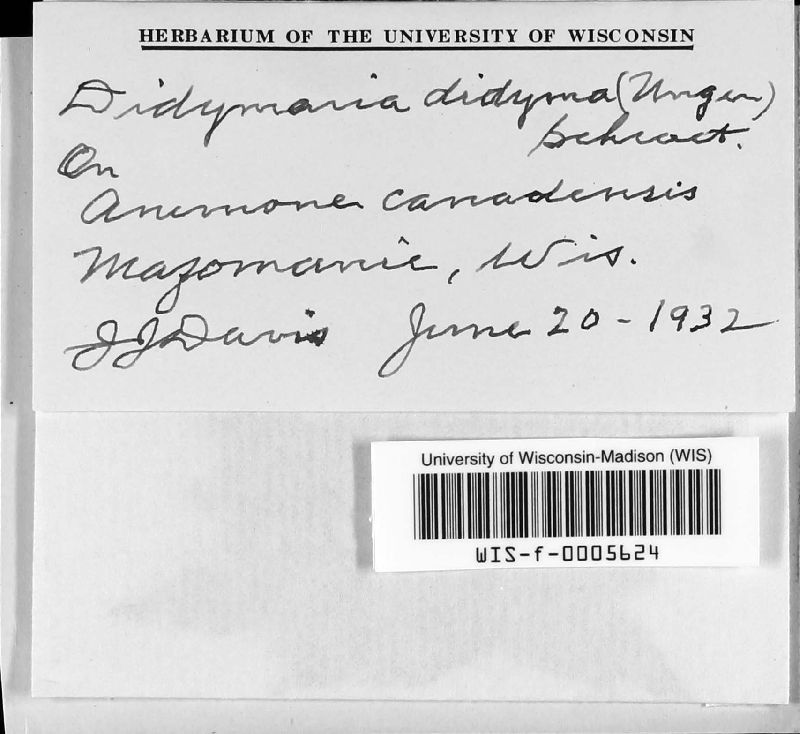 HERBARIUM OF THE UNIVERSITY OF WISCONSIN
Didymaria didyma (Unger)
Schroet.
On
Anemone canadensis
Mazomanie, Wis.
JJDavis June 20-1932
University of Wisconsin-Madison (WIS)
WIS-f-0005624